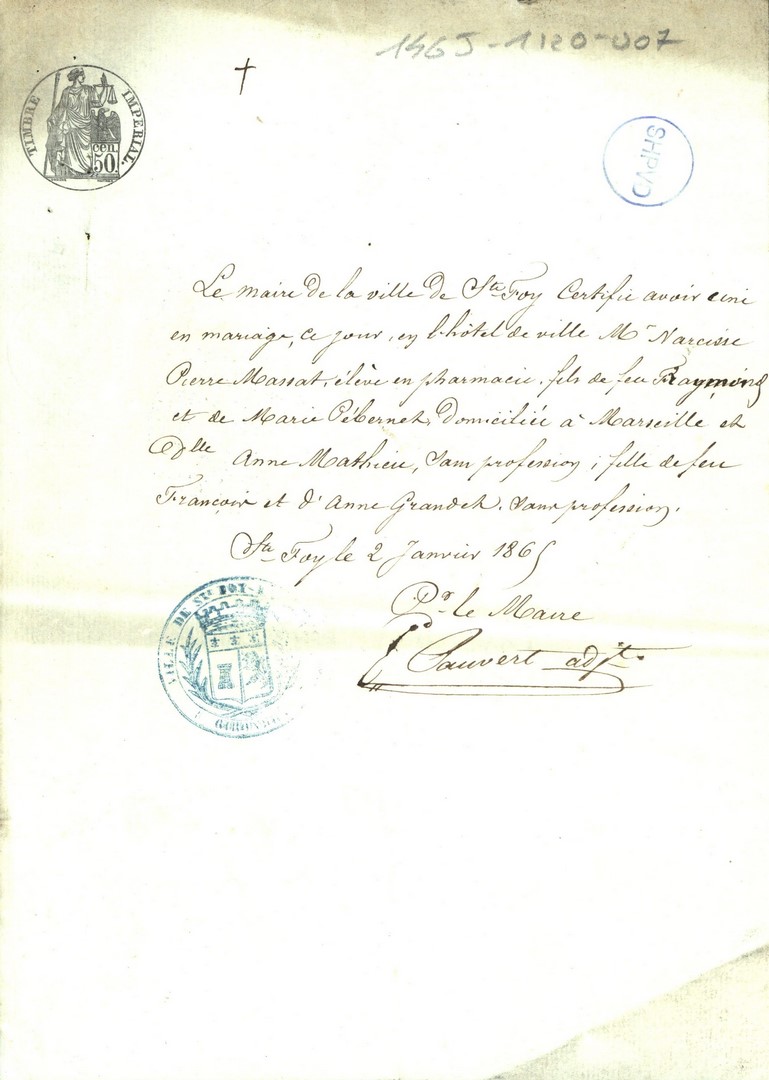 146J-1120-007
TIMBRE IMPERIAL.
cen.
50.
SHPVD
Le maire de la ville de Ste Foy Certifie avoir uni
en mariage, ce jour, en l'hôtel de ville Mr Narcisse
Pierre Massat, élève en pharmacie, fils de feu Raymond
et de Marie Pébernet, domiciliée à Marseille et
Dlle Anne Mathieu, sans profession, fille de feu
François et d'Anne Grandet, sans profession.
Ste Foy le 2 Janvier 1865
Pr le Maire
Pauvert adjt.
VILLE DE Ste FOY
GIRONDE